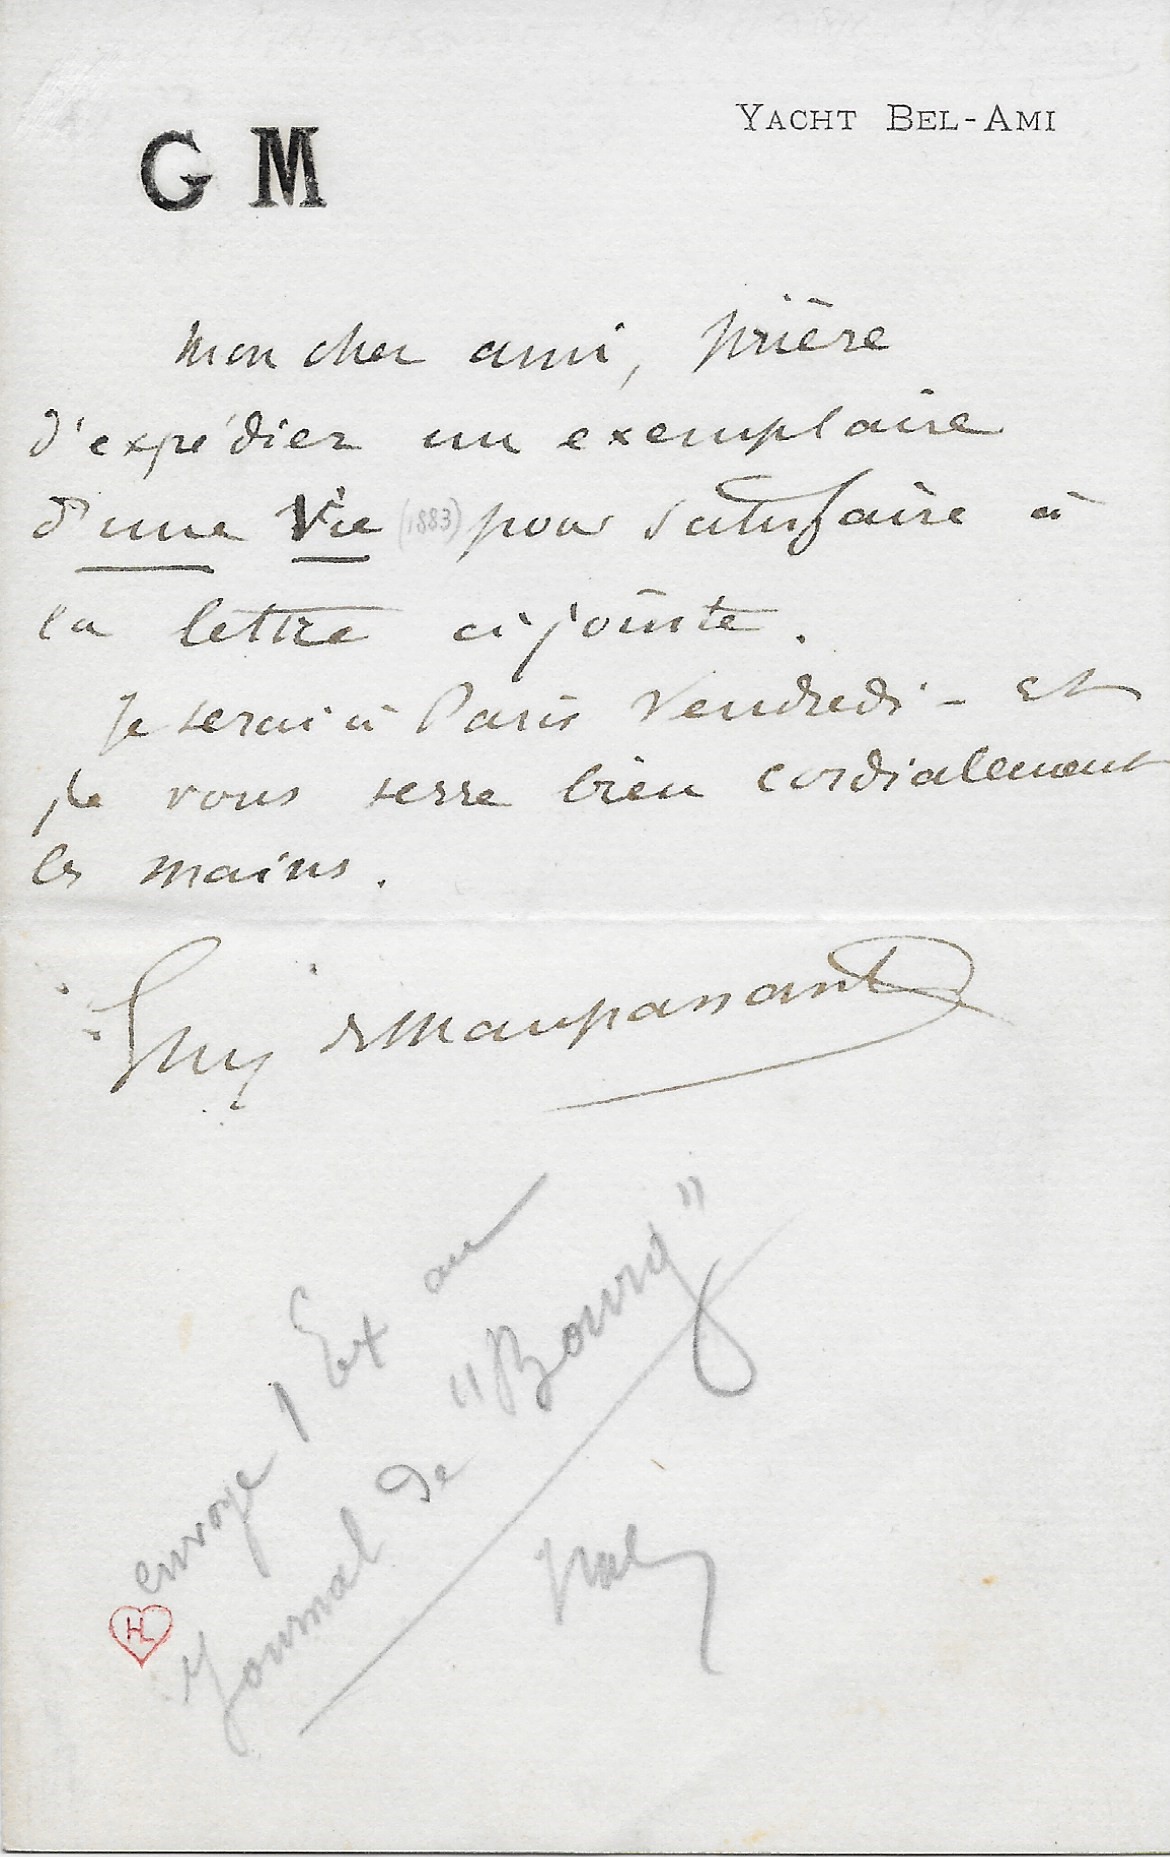 YACHT BEL-AMI
G M
Mon cher ami, prière
d'expédier un exemplaire
d'une Vie (1883) pour satisfaire à
la lettre ci jointe.
Je serai à Paris Vendredi - et
je vous serre bien cordialement
les mains.
Guy de Maupassant
envoye 1 Ex au
Journal de "Bourg"
HL